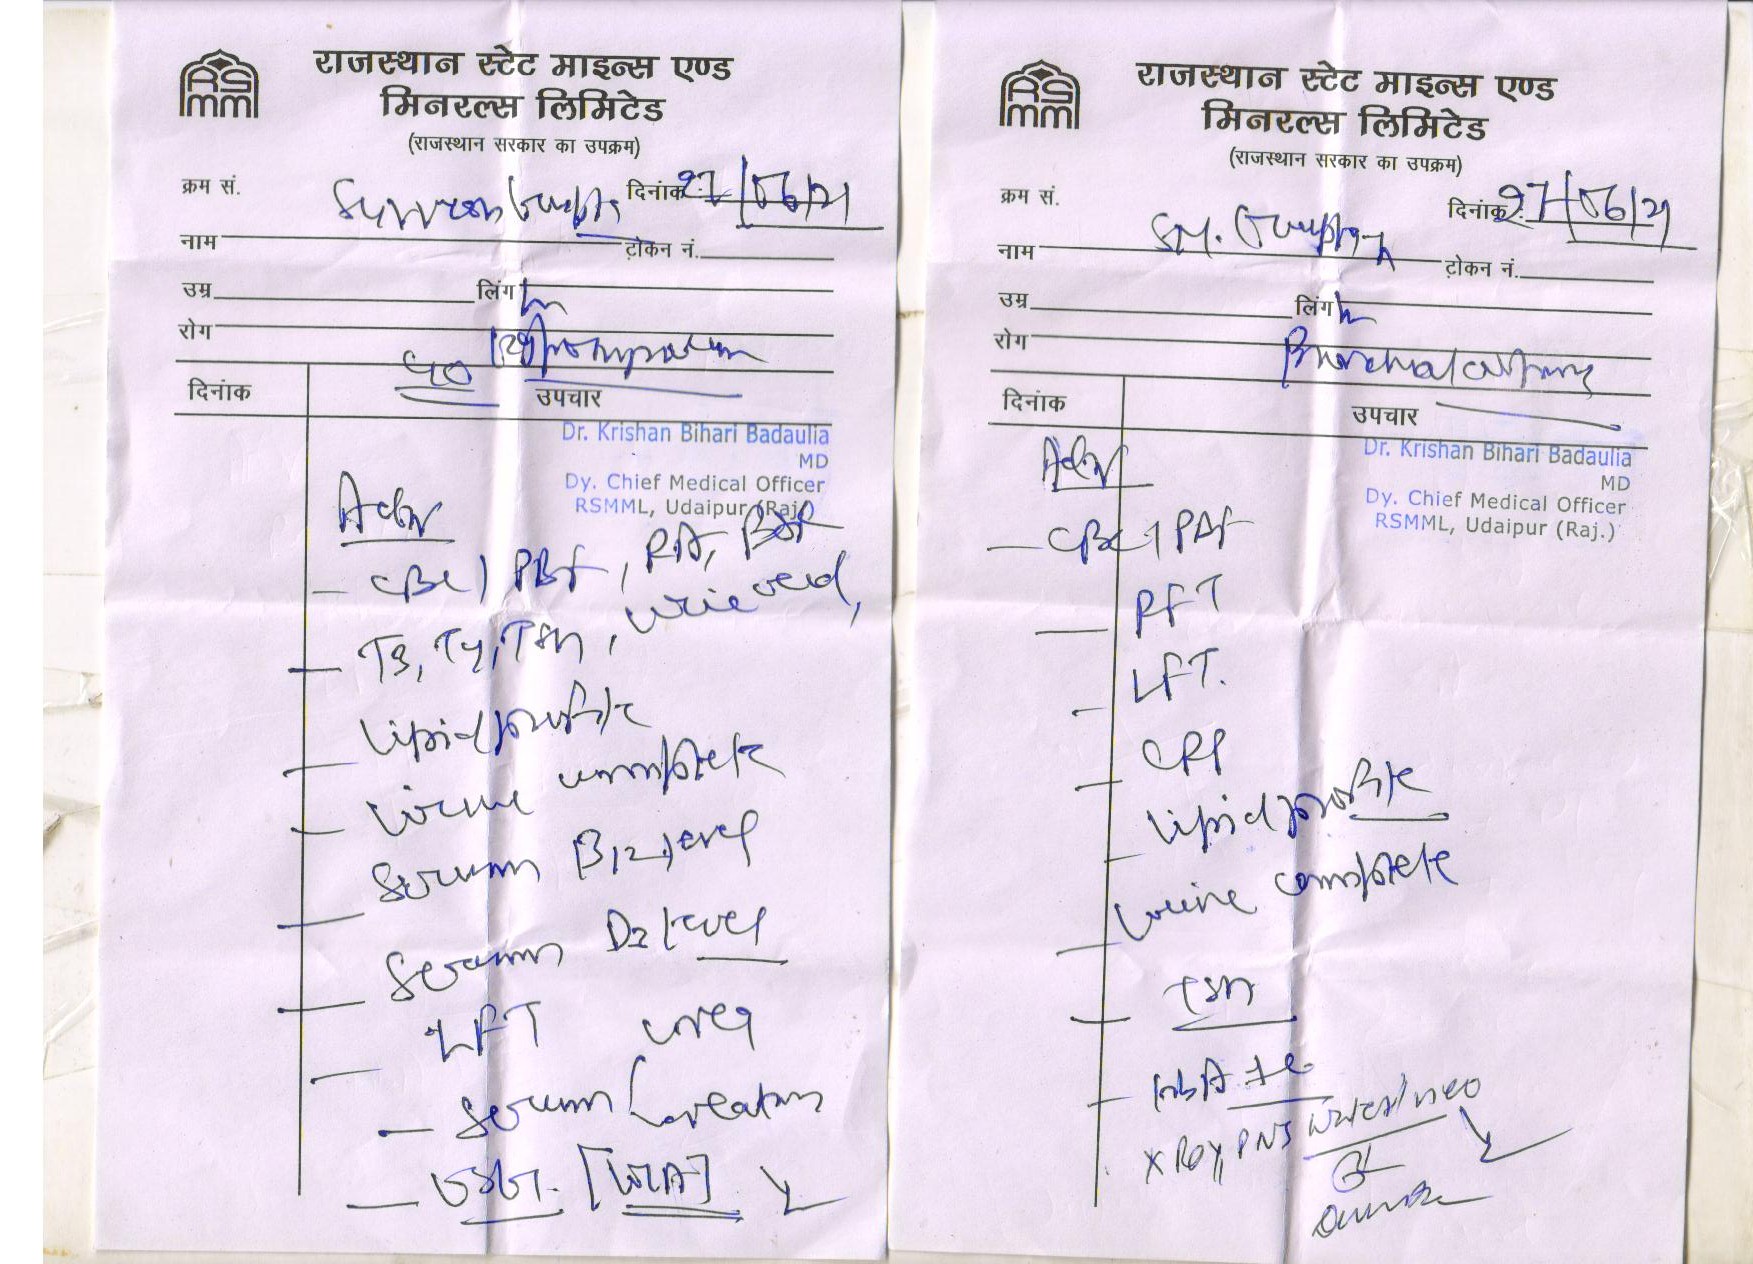 RSMM
राजस्थान स्टेट माइन्स एण्ड
मिनरल्स लिमिटेड
(राजस्थान सरकार का उपक्रम)
क्रम सं. दिनांक 27/06/21
नाम Gupta टोकन नं.
उम्र लिंग
रोग
दिनांक उपचार
Dr. Krishan Bihari Badaulia
MD
Dy. Chief Medical Officer
RSMML, Udaipur (Raj.)
Adv
CBC, PBF, RA,
T3, T4, TSH, uric acid,
Lipid profile
Urine complete
Serum B12 level
Serum D3 level
LFT urea
Serum Creatin
RSMM
राजस्थान स्टेट माइन्स एण्ड
मिनरल्स लिमिटेड
(राजस्थान सरकार का उपक्रम)
क्रम सं. दिनांक 27/06/21
नाम Gupta टोकन नं.
उम्र लिंग
रोग Bronchial asthma
दिनांक उपचार
Dr. Krishan Bihari Badaulia
MD
Dy. Chief Medical Officer
RSMML, Udaipur (Raj.)
Adv
CBC, PBF
RFT
LFT.
CRP
Lipid profile
Urine complete
TSH
HbA1c
X Ray PNS